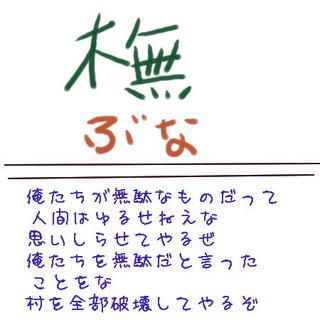 橅
ぶな
俺たちが無駄なものだって
人間はゆるせねえな
思いしらせてやるぜ
俺たちを無駄だと言った
ことをな
村を全部破壊してやるぞ